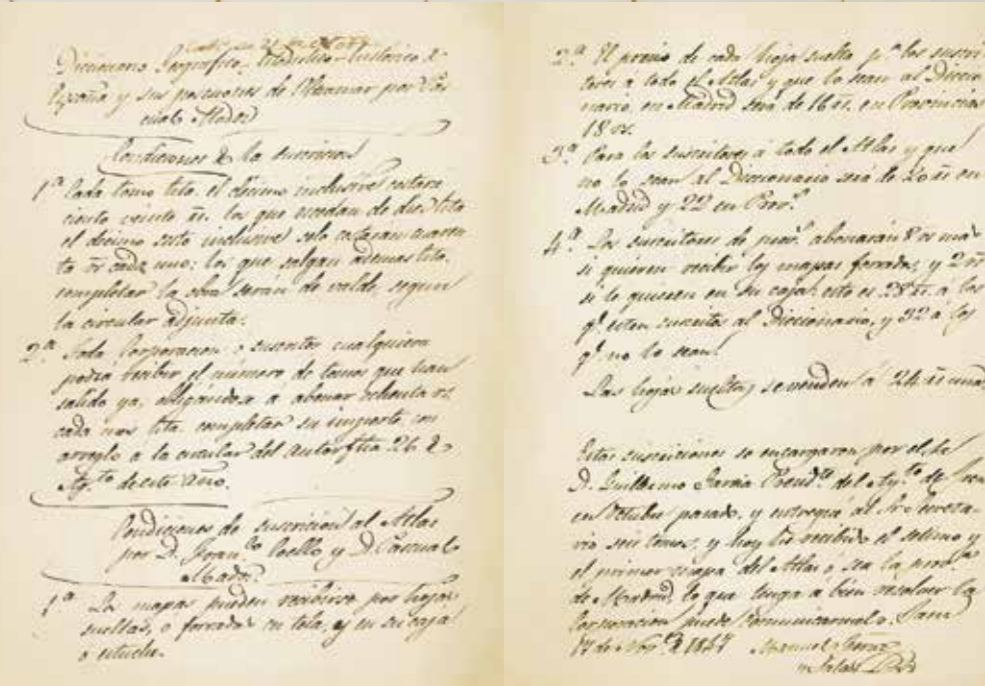 Diccionario Geografico-Estadistico-historico de
España y sus posesiones de Ultramar por Pas-
cual Madoz
Condiciones de la suscricion
1ª Cada tomo hta. el decimo inclusive costará
ciento veinte rs. los que escedan de diez hta
el decimo sesto inclusive solo costaran cuaren
ta rs cada uno; los que salgan ademas hta.
completar la obra seran de valde, segun
la circular adjunta.
2ª Toda Corporacion o suscritor cualquiera
podra recibir el número de tomos que han
salido ya, obligandose a abonar ochenta rs.
cada mes hta. completar su importe, con
arreglo a la circular del autor fha 26 de
Agto. de este año.
Condiciones de suscricion al Atlas
por D. Franco. Coello y D. Pascual
Madoz.
1ª Los mapas pueden recibirse por hojas
sueltas, o forrados en tela, y en su caja
o estuche.
2ª El precio de cada hoja suelta pa. los suscri
tores á todo el Atlas y que lo sean al Diccio
nario, en Madrid será de 16 rs. en Provincias
18 rs.
3ª Para los suscritores á todo el Atlas y que
no lo sean al Diccionario será de 20 rs en
Madrid y 22 en Prova.
4ª Los suscritores de prova. abonarán 8 rs mas
si quieren recibir los mapas forrados, y 2 rs
si lo quisiesen en su caja: esto es 28 rs. a los
qe. esten suscritos al Diccionario, y 32 a los
qe. no lo sean.
Las hojas sueltas se venden á 24 rs una
Estas suscriciones se encargaron por el
D. Guillermo Garcia del Ayto. de
en Octubre pasado, y entregué al Sr Secreta-
rio seis tomos, y hoy he recibido el setimo y
el primer mapa del Atlas o sea la prova.
de Madrid, lo que tenga a bien resolver la
Corporacion puede comunicarmelo.
17 de Nove. de 1847 Manuel